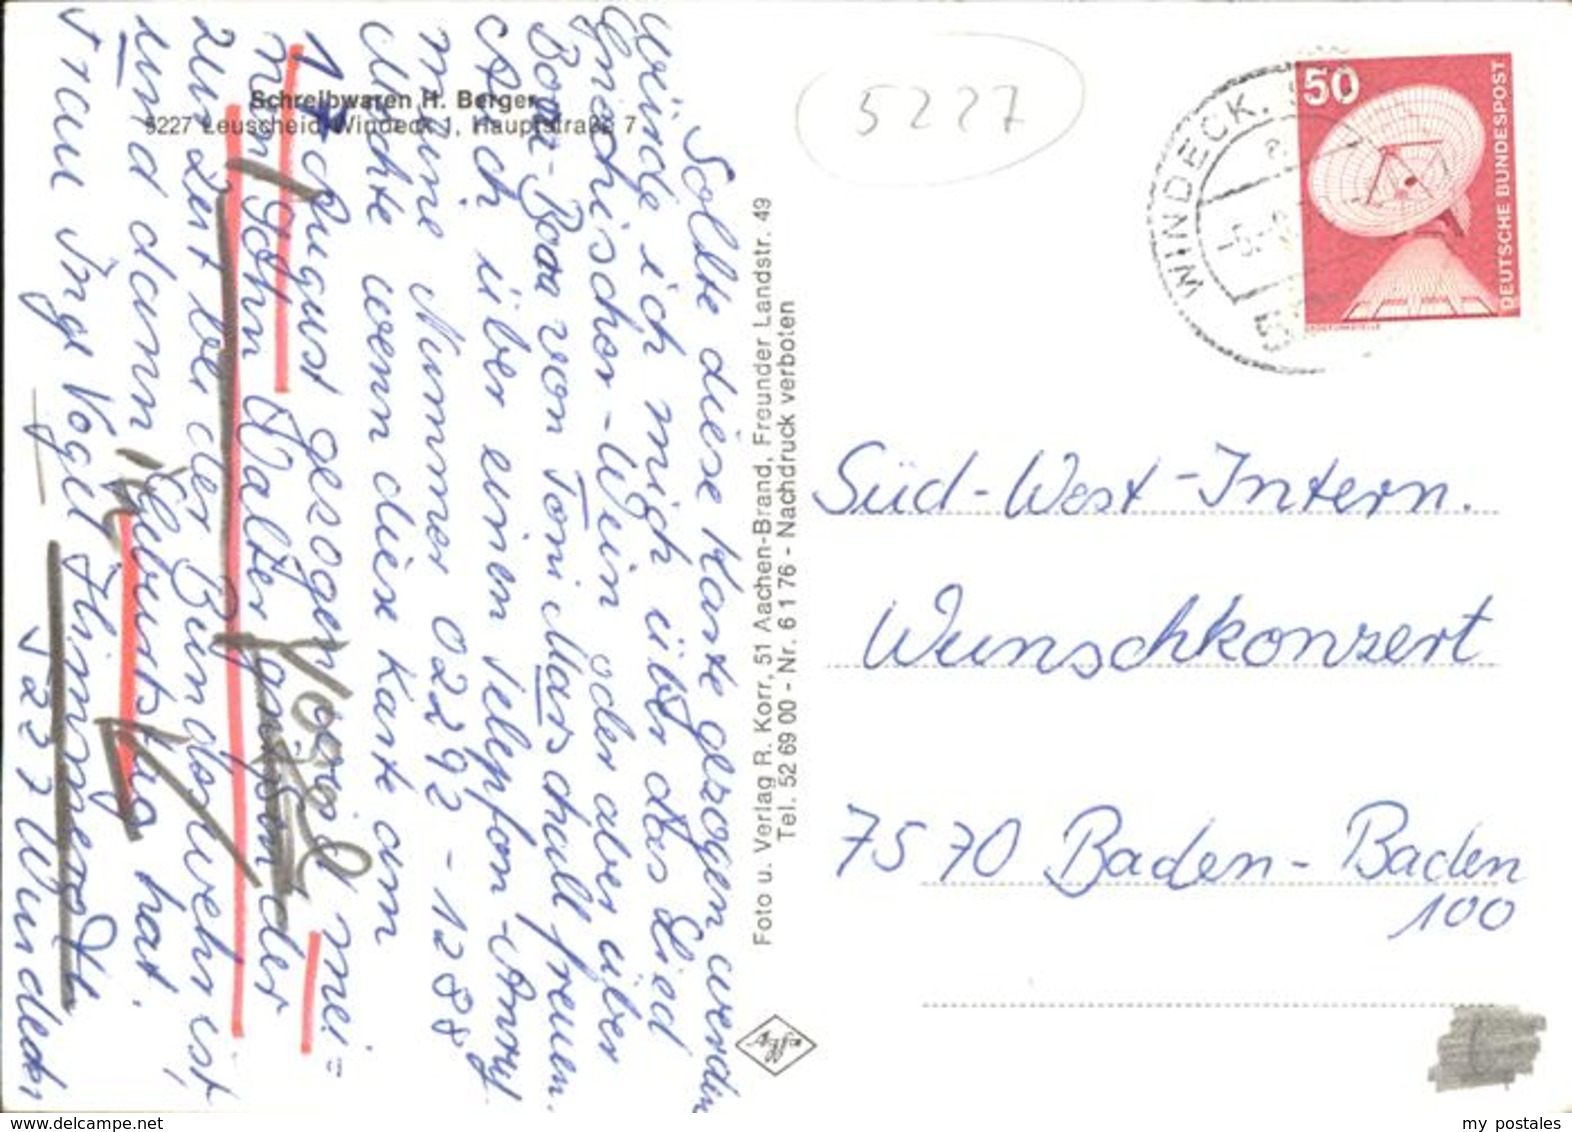 Schreibwaren H. Berger
5227 Leuscheid/Windeck 1, Hauptstraße 7
5227
WINDECK
50
DEUTSCHE BUNDESPOST
ERDEFUNKSTELLE
Sollte diese Karte gezogen werden
würde ich mich über das Lied
Griechischer-Wein oder aber über
Bora-Bora von Toni Marschall freuen.
Auch über einen Telepfon-Anruf
meine Nummer 02292-1288
Möchte wenn diese Karte am
1 August gezogen wird mei=
"
Vogel
mein Sohn Walter ganzson der
zur Zeit bei der Bundeswehr ist,
und dann Geburtstag hat.
Frau Inge Vogel
5227 Windeck
Foto u. Verlag R. Korr, 51 Aachen-Brand, Freunder Landstr. 49
Tel. 52 69 00 - Nr. 6 1 76 - Nachdruck verboten
Agfa
Süd-West-Intern.
Wunschkonzert
7570 Baden-Baden
100
my postales